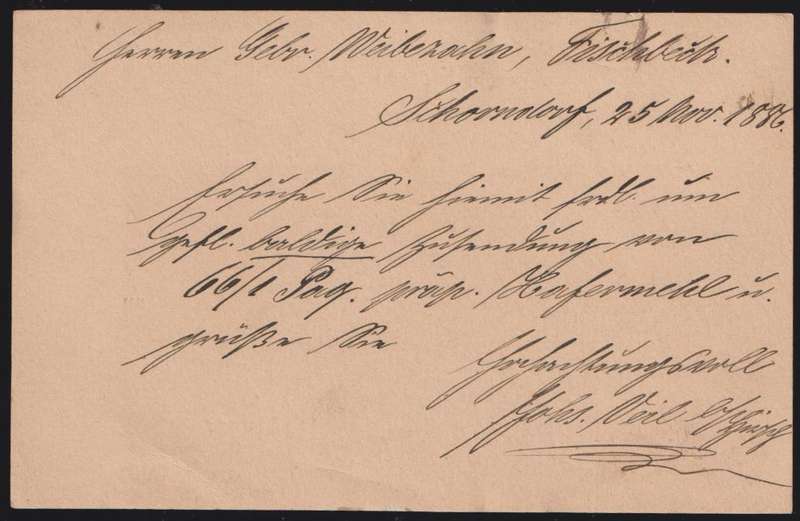 Herren Gebr. Weibezahn, Fischbeck.
Schorndorf, 25 Nov. 1886.
Ersuche Sie hiemit frdl. um
gefl. baldige Zusendung von
66/1 Paq. präp. Hafermehl u.
grüße Sie
Hochachtungsvoll
Johs. Veil